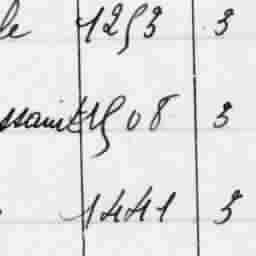 le 1253 3
ssaint 1508 3
1441 3